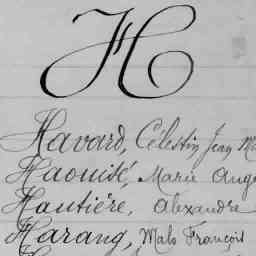 H
Havard, Célestin Jean M
Haouisé, Marie Ang
Hautière, Alexandre
Harang, Malo François